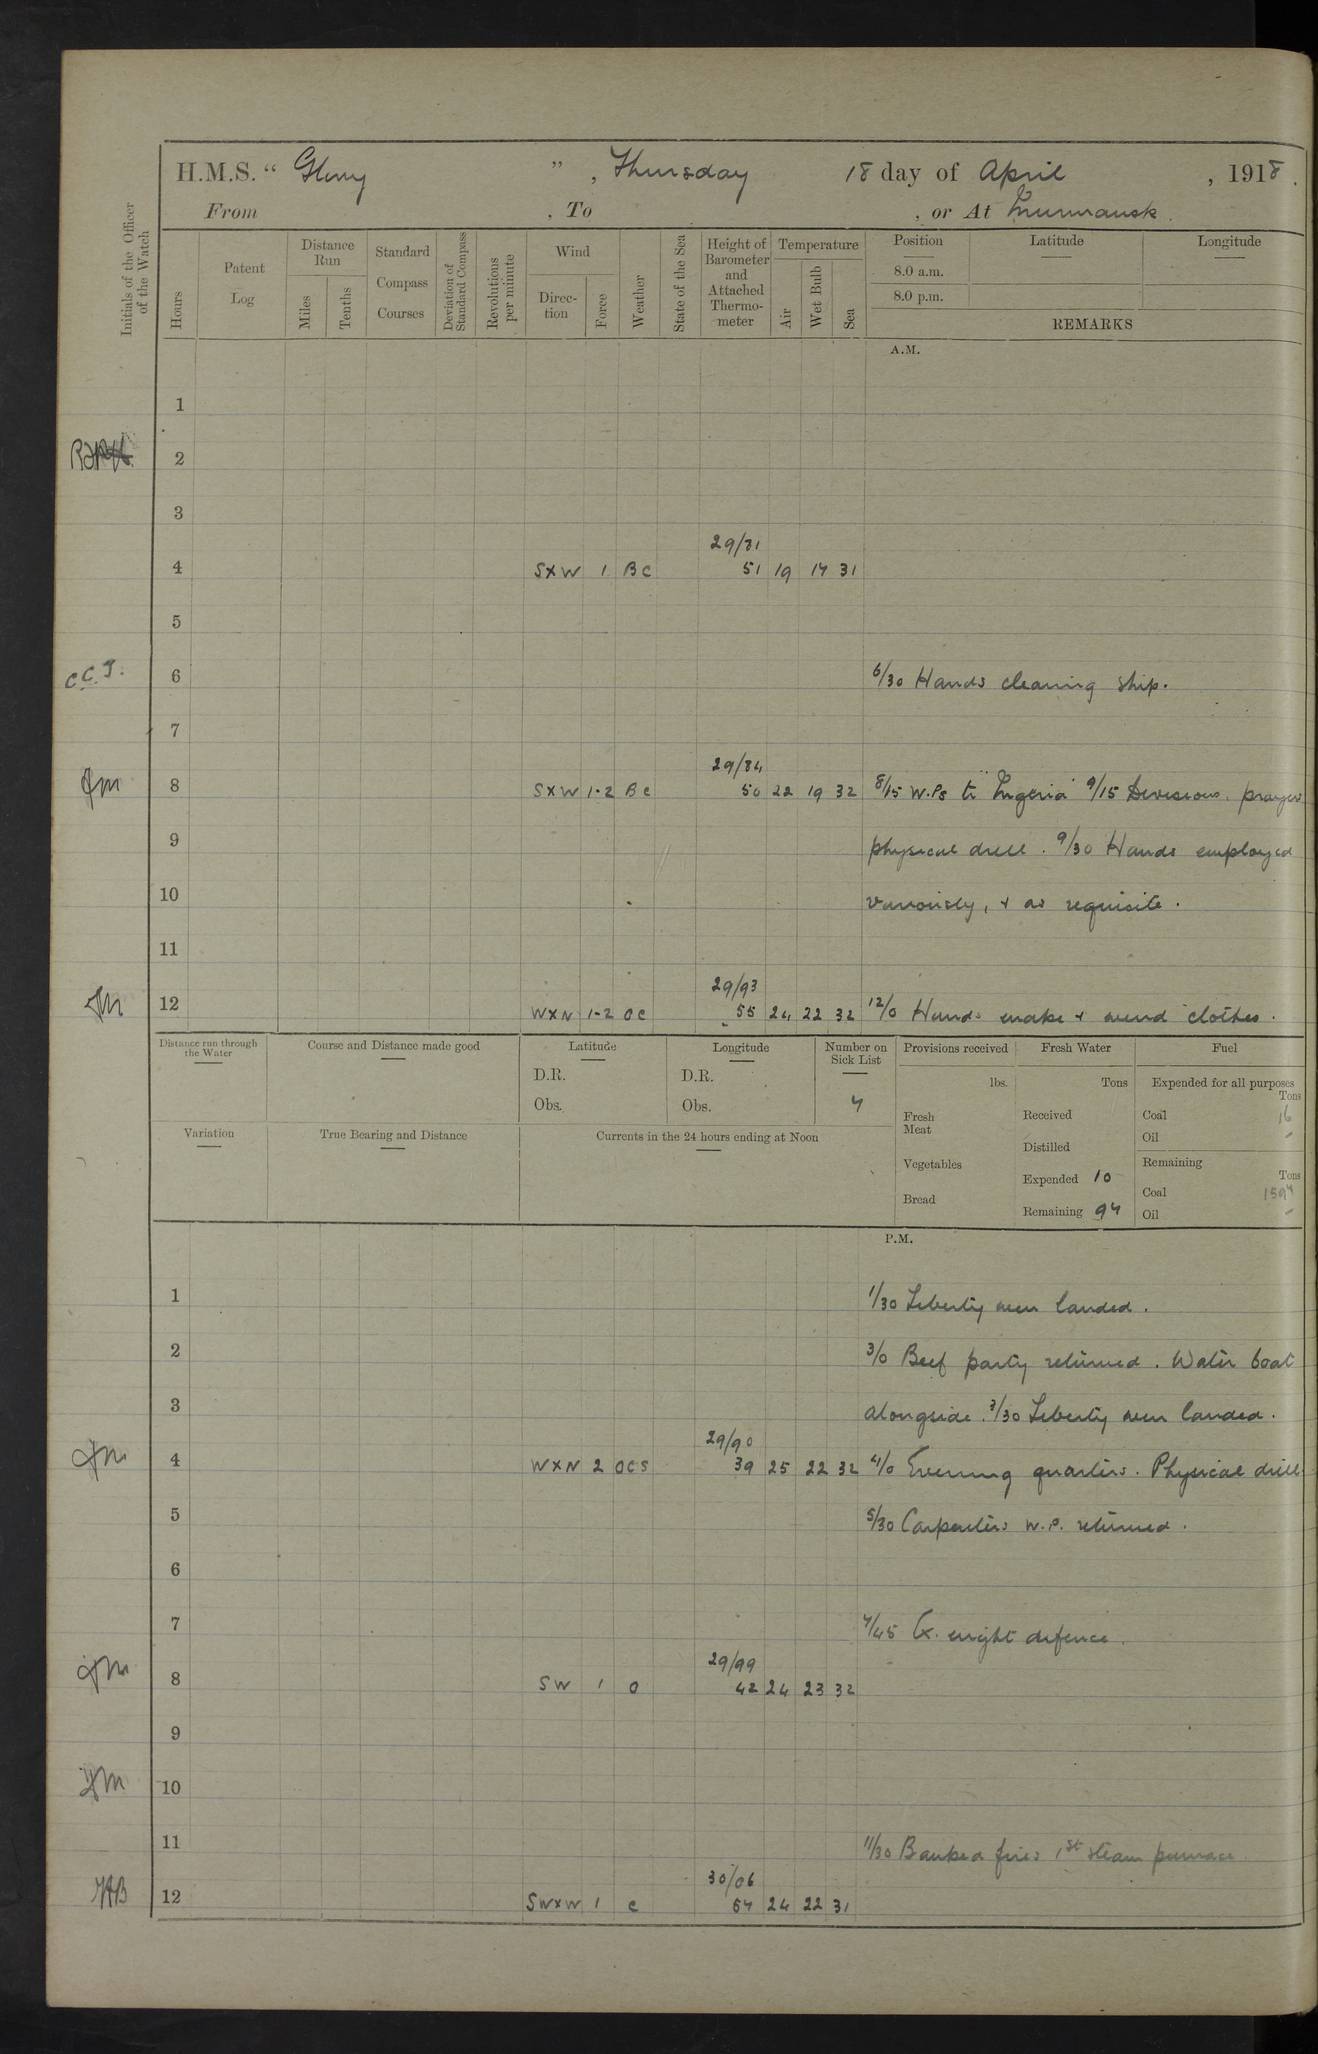 H.M.S. “ Glory ” , Thursday 18 day of April , 1918.
From , To , or At Murmansk.
Initials of the Officer of the Watch
Hours
Patent Log
Distance Run
Miles
Tenths
Standard Compass Courses
Deviation of Standard Compass
Revolutions per minute
Wind
Direction
Force
Weather
State of the Sea
Height of Barometer and Attached Thermometer
Temperature
Air
Wet Bulb
Sea
Position
Latitude
Longitude
8.0 a.m.
8.0 p.m.
REMARKS
A.M.
1
2
3
29/81
4 SXW 1 BC 51 19 17 31
5
C.C.J. 6 6/30 Hands cleaning ship.
7
29/84
JM 8 SXW 1-2 BC 50 22 19 32 8/15 W.Ps to "Nigeria" 9/15 Divisions, prayers
9 physical drill. 9/30 Hands employed
10 variously, & as requisite.
11
29/93
JM 12 WXN 1-2 OC 55 24 22 32 12/0 Hands make & mend clothes.
Distance run through the Water
Course and Distance made good
Latitude
Longitude
Number on Sick List
Provisions received
Fresh Water
Fuel
D.R. D.R. lbs. Tons Expended for all purposes
Tons
Obs. Obs. 7 Fresh Meat Received Coal 16
Oil -
Variation
True Bearing and Distance
Currents in the 24 hours ending at Noon
Distilled
Vegetables
Remaining
Tons
Expended 10
Coal 1597
Bread
Remaining 97
Oil -
P.M.
1 1/30 Liberty men landed.
2 3/0 Beef party returned. Water boat
3 alongside. 3/30 Liberty men landed.
29/90
JM 4 WXN 2 OCS 39 25 22 32 4/0 Evening quarters. Physical drill
5 5/30 Carpenters W.P. returned.
6
7 7/45 Ex. night defence.
29/99
JM 8 SW 1 O 42 24 23 32
9
JM 10
11 11/30 Banked fires 1st steam pinnace.
30/06
12 SWXW 1 C 67 24 22 31